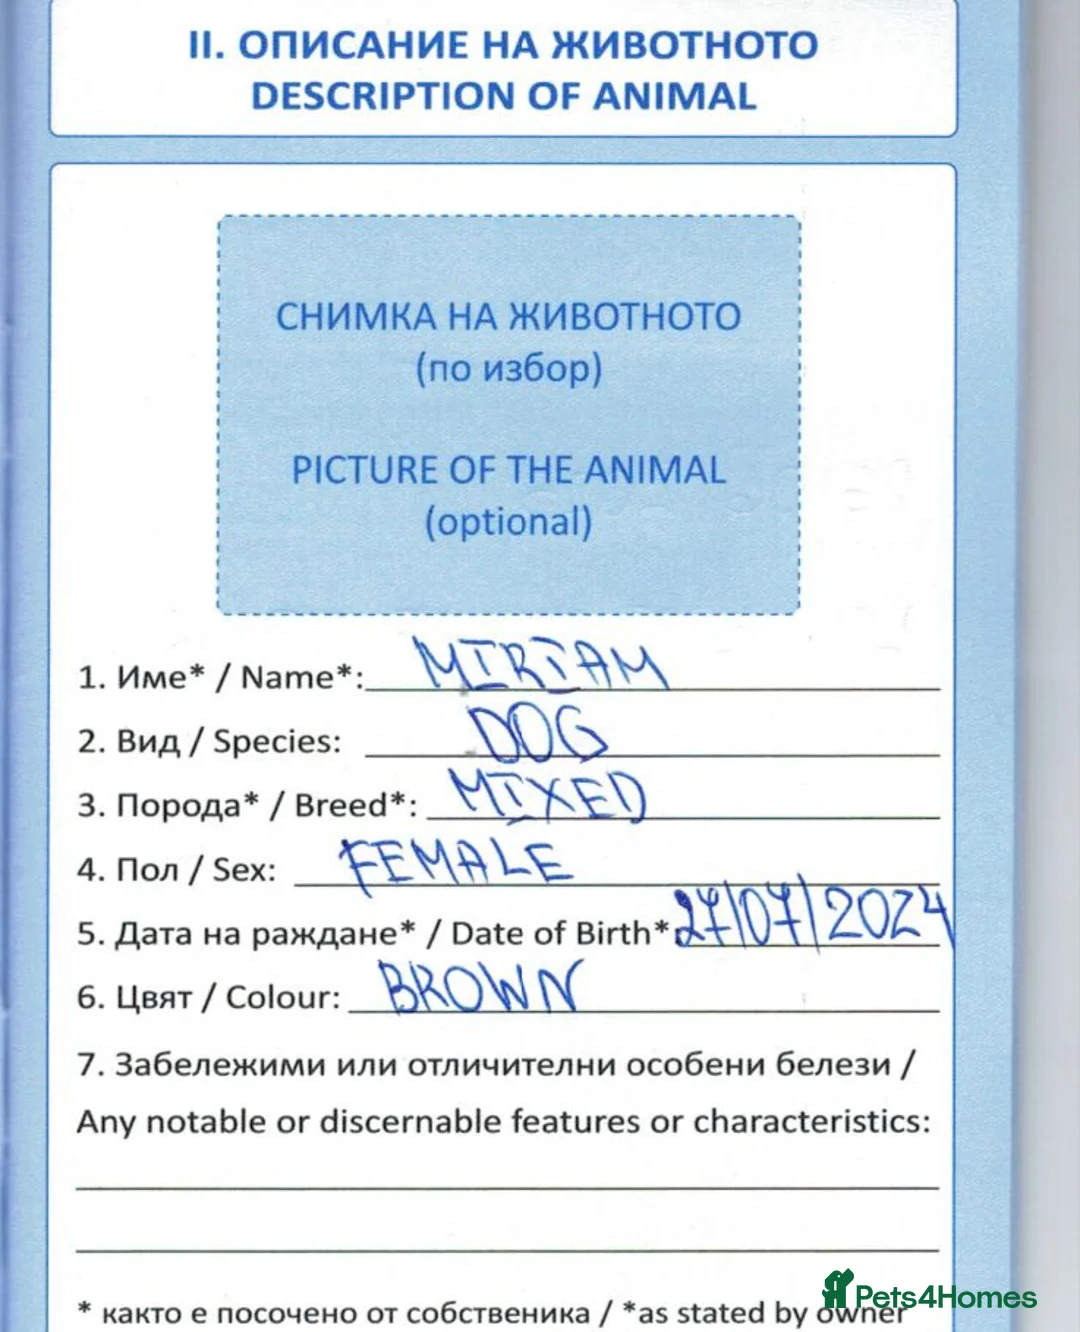 II. ОПИСАНИЕ НА ЖИВОТНОТО
DESCRIPTION OF ANIMAL
СНИМКА НА ЖИВОТНОТО
(по избор)
PICTURE OF THE ANIMAL
(optional)
1. Име* / Name*: MIRIAM
2. Вид / Species: DOG
3. Порода* / Breed*: MIXED
4. Пол / Sex: FEMALE
5. Дата на раждане* / Date of Birth*: 27/07/2024
6. Цвят / Colour: BROWN
7. Забележими или отличителни особени белези /
Any notable or discernable features or characteristics:
* както е посочено от собственика / *as stated by owner
Pets4Homes